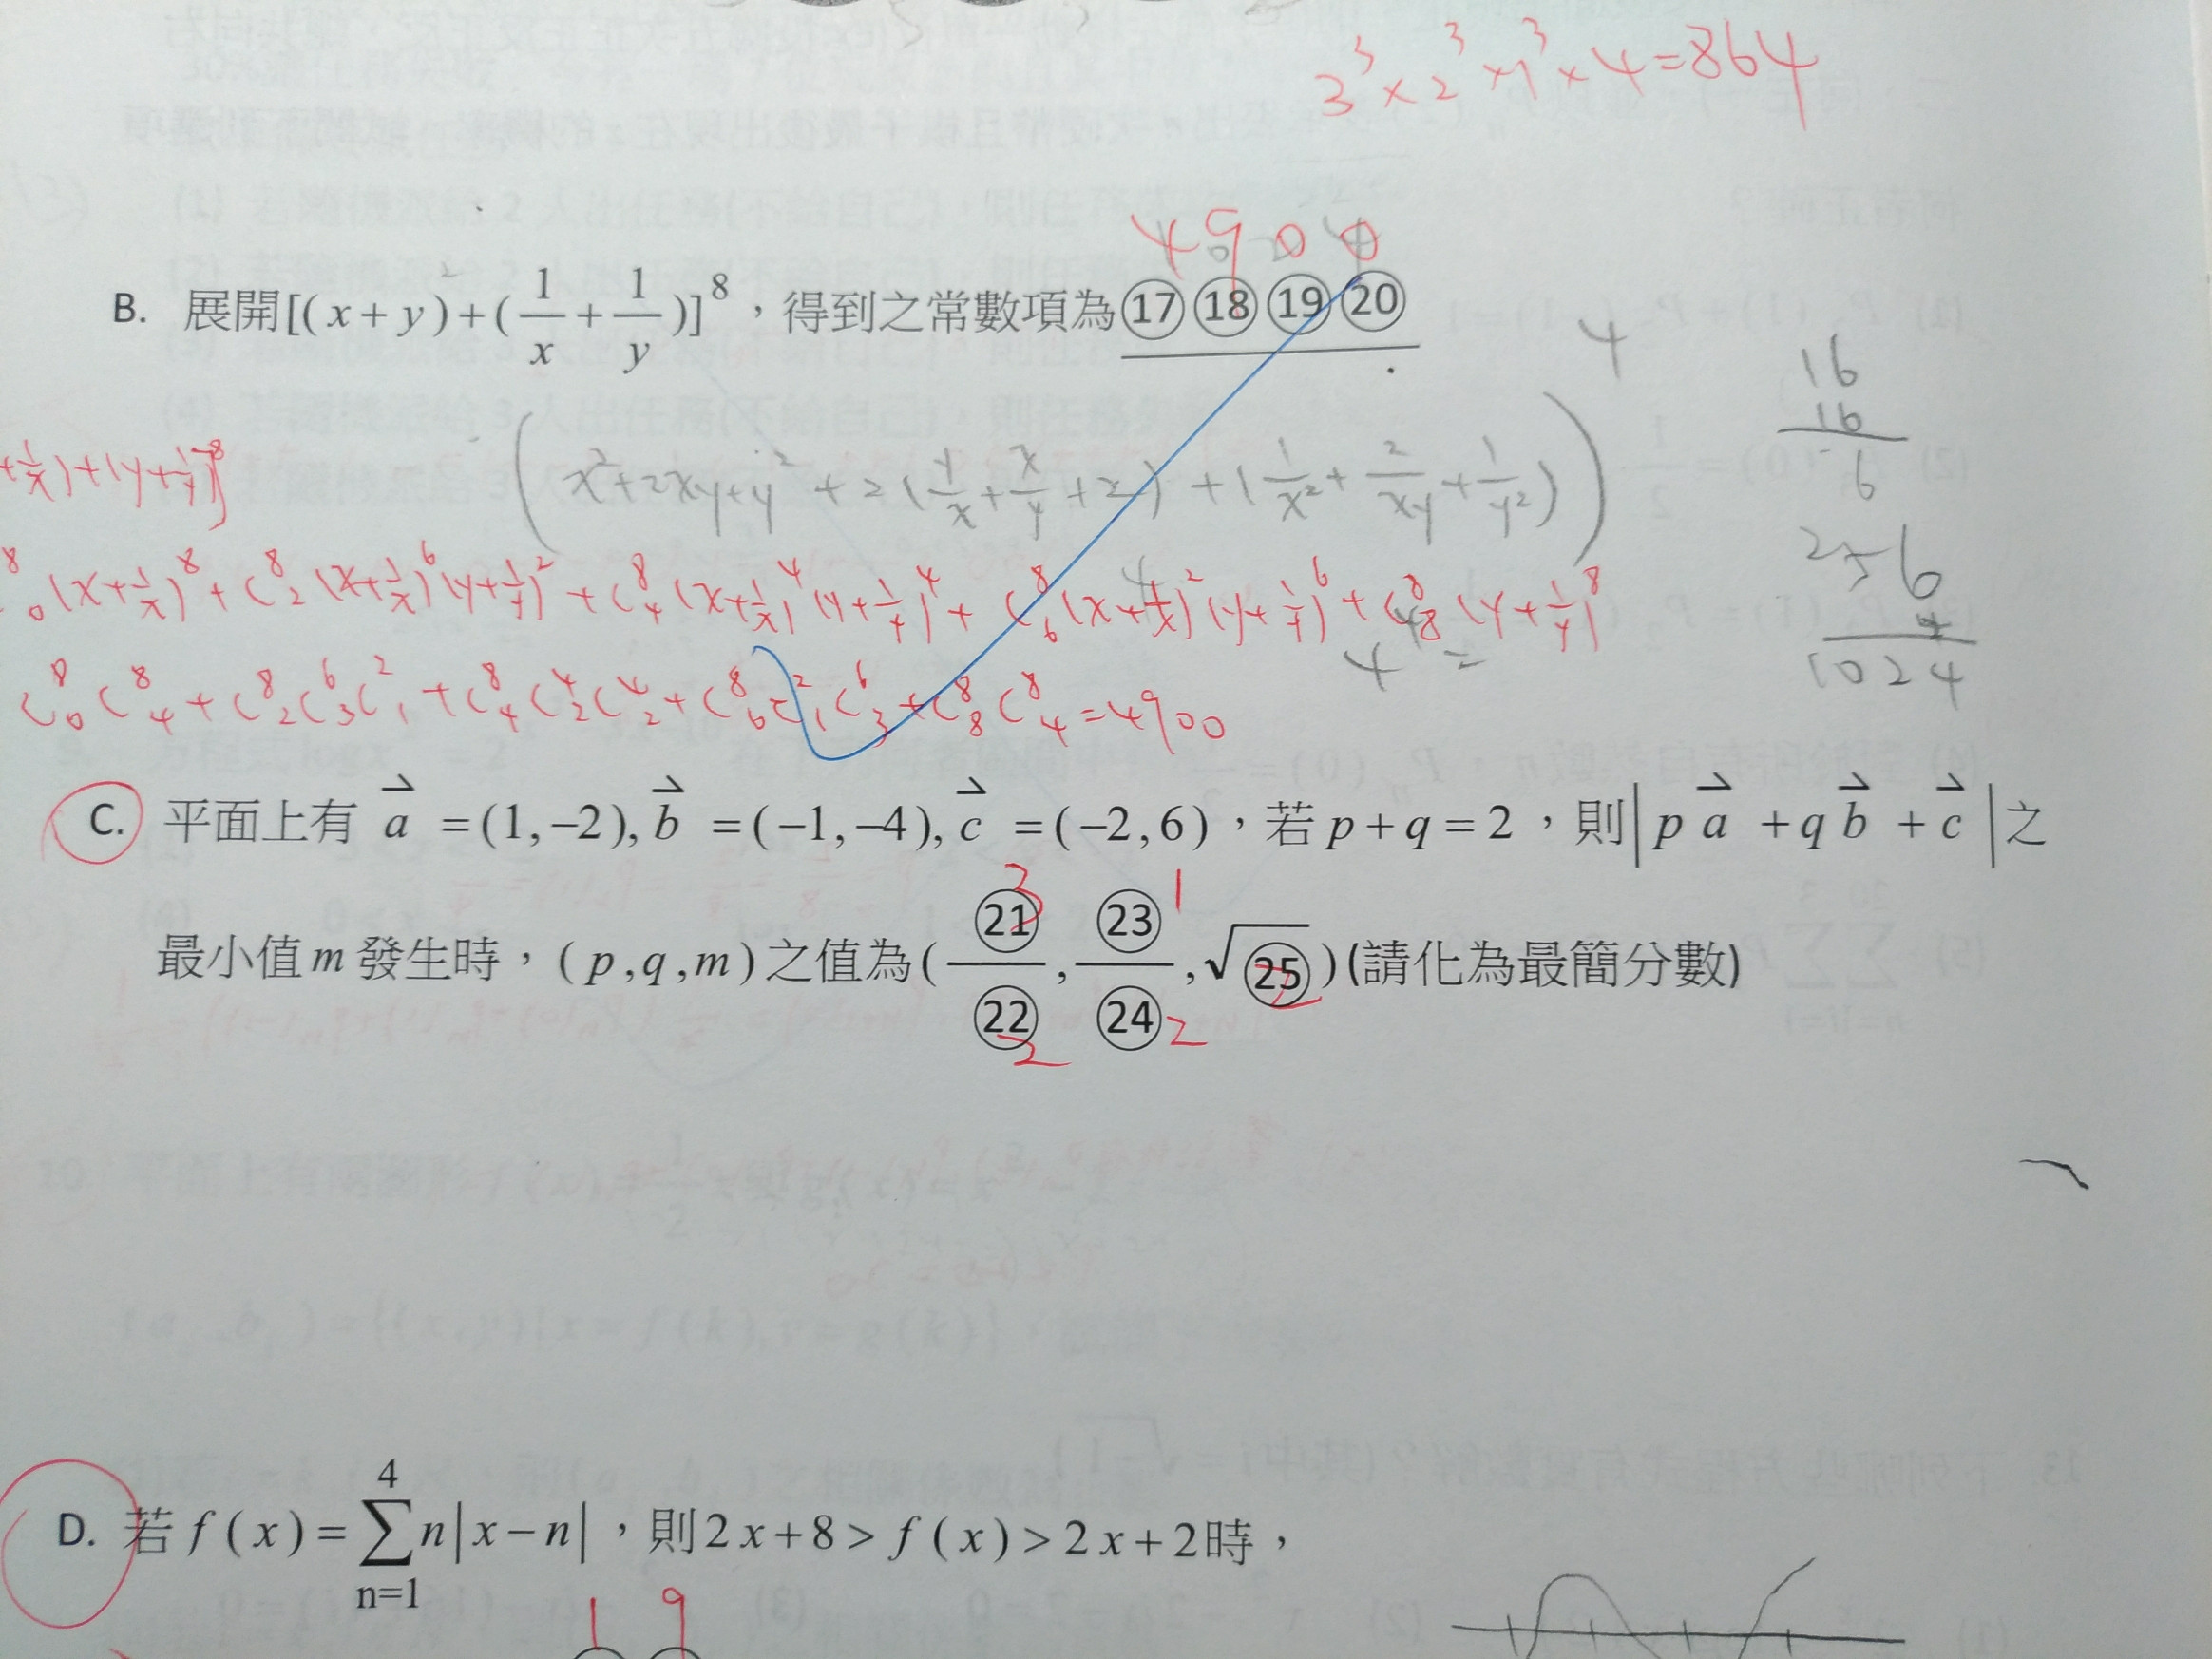 3³×2³×1³×4=864
4900
B. 展開[(x+y)+(1/x+1/y)]⁸，得到之常數項為⑰⑱⑲⑳
4
16
16
6
256
4
1024
(x²+2xy+y²+2(y/x+x/y+2)+(1/x²+2/xy+1/y²))
+1/x)+(y+1/y)]⁸
⁸₀(x+1/x)⁸+C⁸₂(x+1/x)⁶(y+1/y)²+C⁸₄(x+1/x)⁴(y+1/y)⁴+C⁸₆(x+1/x)²(y+1/y)⁶+C⁸₈(y+1/y)⁸
4⁴=
C⁸₀C⁸₄+C⁸₂C⁶₃C²₁+C⁸₄C⁴₂C⁴₂+C⁸₆C²₁C⁶₃+C⁸₈C⁸₄=4900
C. 平面上有 a⇀=(1,−2), b⇀=(−1,−4), c⇀=(−2,6)，若p+q=2，則|p a⇀+q b⇀+c⇀|之
3 1
最小值m發生時，(p,q,m)之值為(㉑/㉒,㉓/㉔,√㉕)(請化為最簡分數)
2 2 2
D. 若f(x)=∑(n=1→4) n|x−n|，則2x+8>f(x)>2x+2時，
1 9